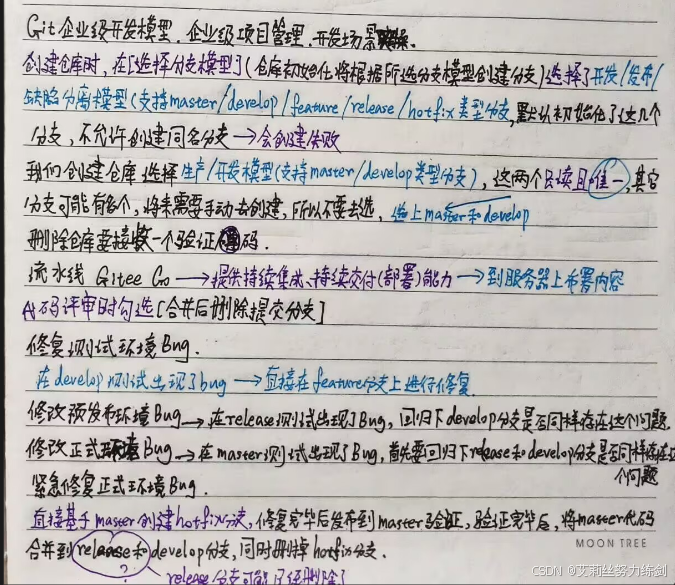 Git企业级开发模型.企业级项目管理.开发场景
创建仓库时,在[选择分支模型](仓库初始化将根据所选分支模型创建分支)选择了开发/发布/
缺陷分离模型(支持master/develop/feature/release/hotfix类型分支,默认初始化了这几个
分支,不允许创建同名分支→会创建失败
我们创建仓库选择生产/开发模型(支持master/develop类型分支),这两个只读且唯一,其它
分支可能有多个,将来需要手动去创建,所以不要去选,选上master和develop
删除仓库要接收一个验证码.
流水线 Gitee Go→提供持续集成、持续交付(部署)能力→到服务器上布署内容
代码评审时勾选[合并后删除提交分支]
修复测试环境Bug.
在develop测试出现了bug→直接在feature分支上进行修复
修改预发布环境Bug→在release测试出现了Bug,回归下develop分支是否同样存在这个问题.
修改正式环境Bug→在master测试出现了Bug,首先要回归下release和develop分支是否同样存在这
个问题
紧急修复正式环境Bug.
直接基于master创建hotfix分支,修复完毕后发布到master验证,验证完毕后,将master代码
合并到release和develop分支,同时删掉hotfix分支.
MOON TREE
?
release分支可能已经删除了
CSDN @艾莉丝努力练剑